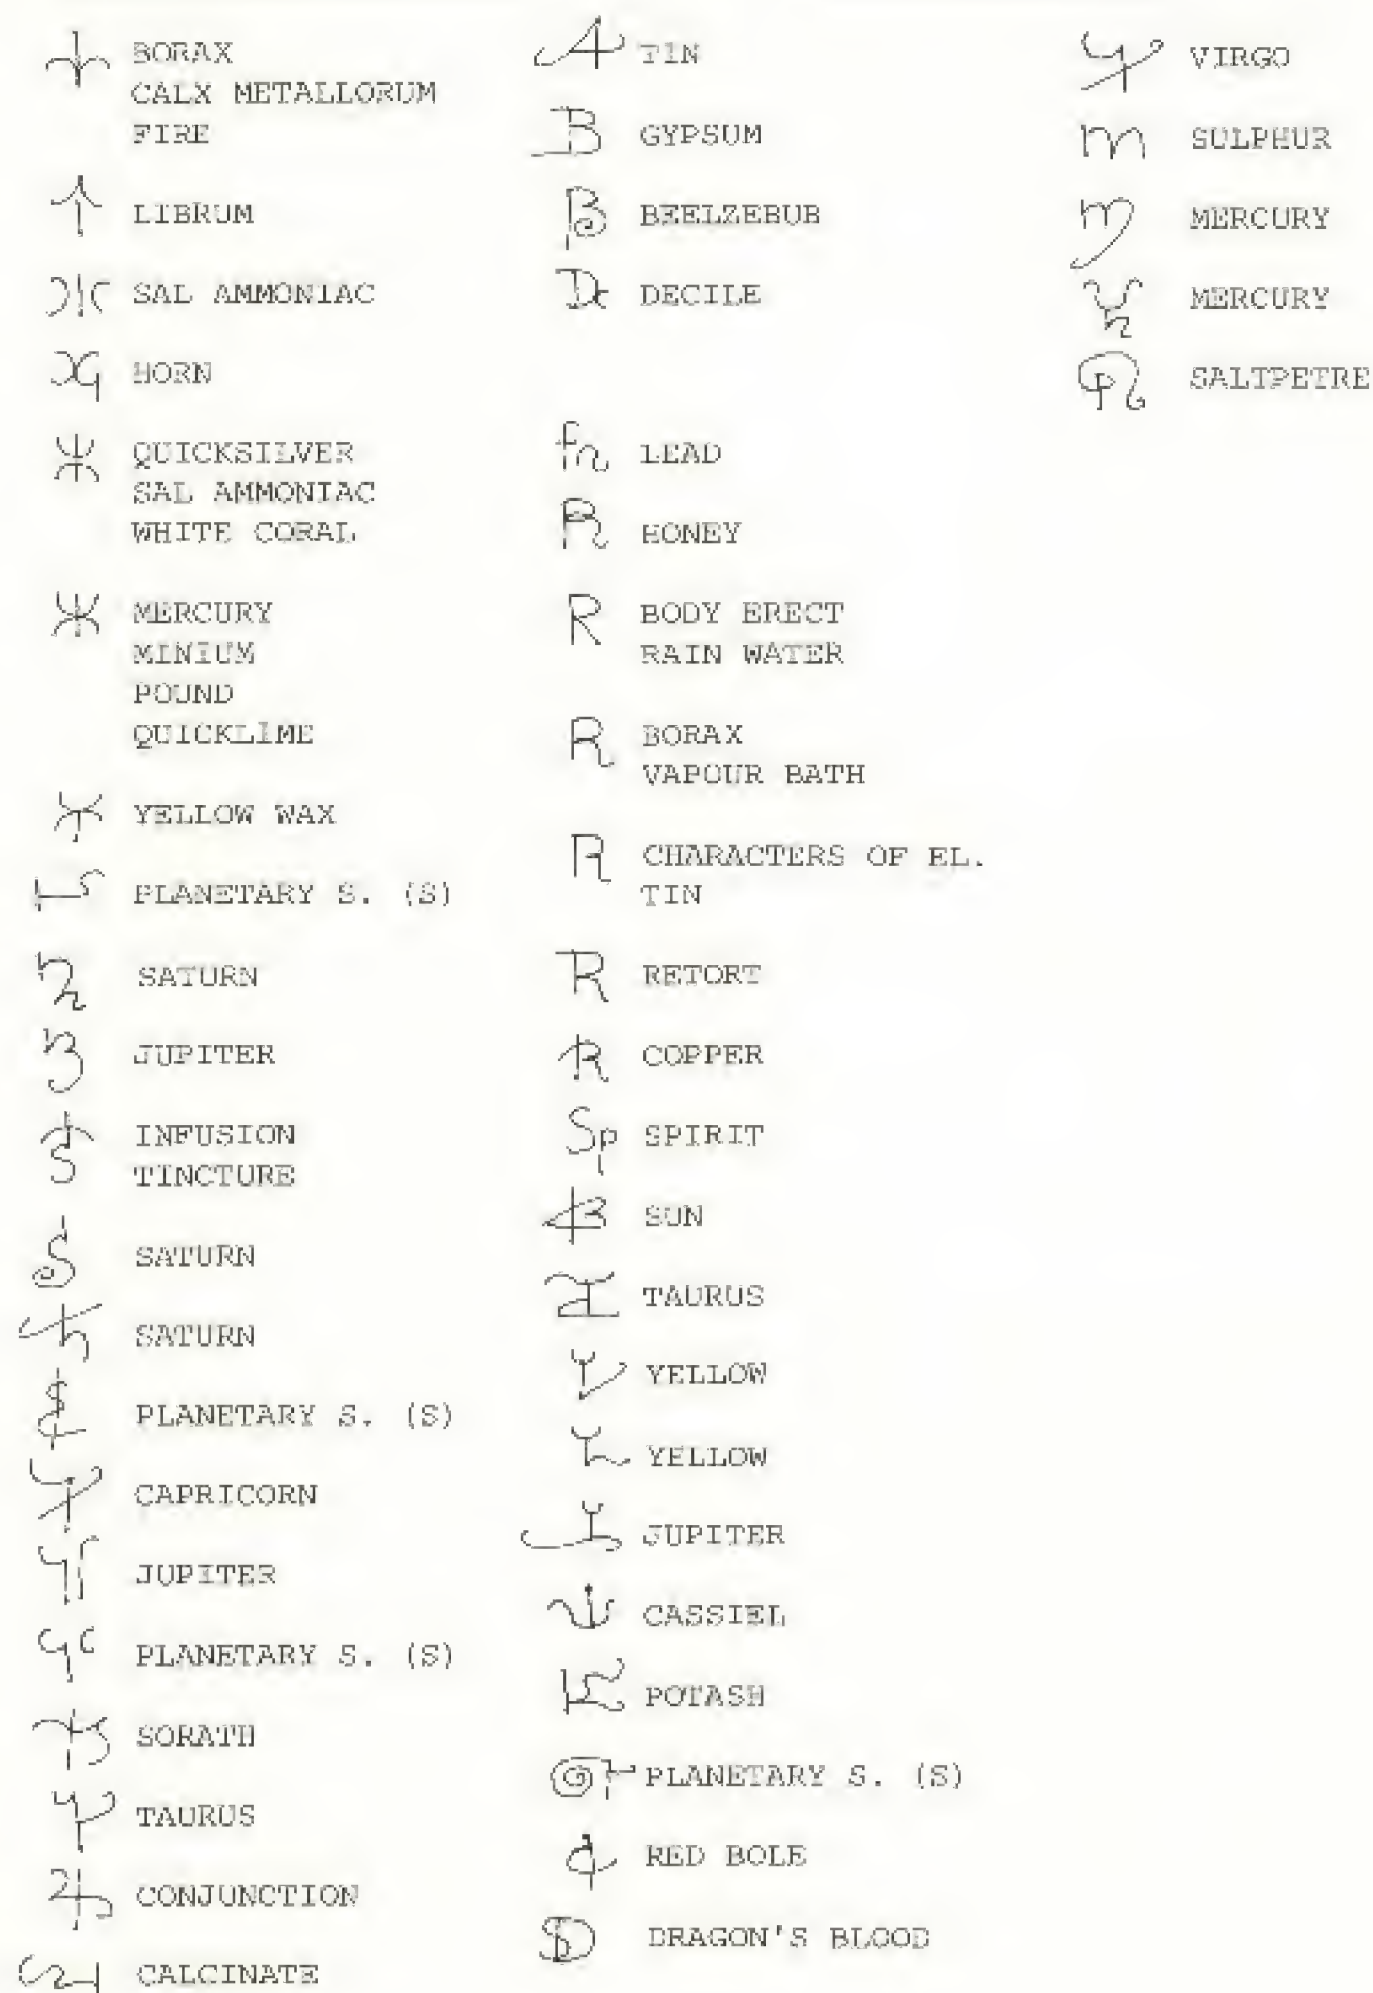 BORAX
CALX METALLORUM
FIRE
LIBRUM
SAL AMMONIAC
HORN
QUICKSILVER
SAL AMMONIAC
WHITE CORAL
MERCURY
MINIUM
POUND
QUICKLIME
YELLOW WAX
PLANETARY S. (S)
SATURN
JUPITER
INFUSION
TINCTURE
SATURN
SATURN
PLANETARY S. (S)
CAPRICORN
JUPITER
PLANETARY S. (S)
SORATH
TAURUS
CONJUNCTION
CALCINATE
TIN
GYPSUM
BEELZEBUB
DECILE
LEAD
HONEY
BODY ERECT
RAIN WATER
BORAX
VAPOUR BATH
CHARACTERS OF EL.
TIN
RETORT
COPPER
SPIRIT
SUN
TAURUS
YELLOW
YELLOW
JUPITER
CASSIEL
POTASH
PLANETARY S. (S)
RED BOLE
DRAGON'S BLOOD
VIRGO
SULPHUR
MERCURY
MERCURY
SALTPETRE